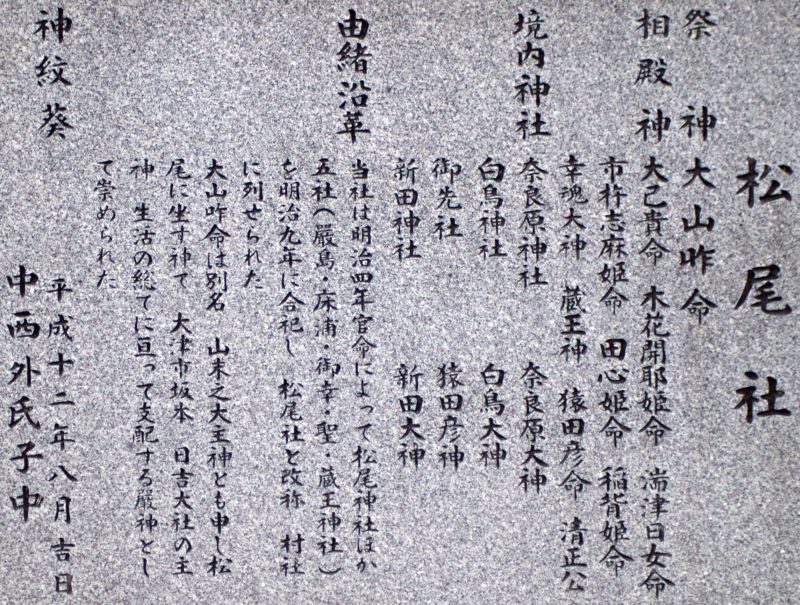 松尾社
祭神 大山咋命
相殿神 大己貴命 木花開耶姫命 湍津日女命
市杵志麻姫命 田心姫命 稲背姫命
幸魂大神 蔵王神 猿田彦命 清正公
境内神社 奈良原神社 奈良原大神
白鳥神社 白鳥大神
御先社 猿田彦神
新田神社 新田大神
由緒沿革 当社は明治四年官命によって松尾神社ほか
五社(厳島・床浦・御幸・聖・蔵王神社)
を明治九年に合祀し 松尾社と改祢 村社
に列せられた
大山咋命は別名 山末之大主神とも申し松
尾に坐す神て 大津市坂本 日吉大社の主
神 生活の総てに亘って支配する厳神とし
て崇められた
神紋 葵
平成十二年八月吉日
中西外氏子中